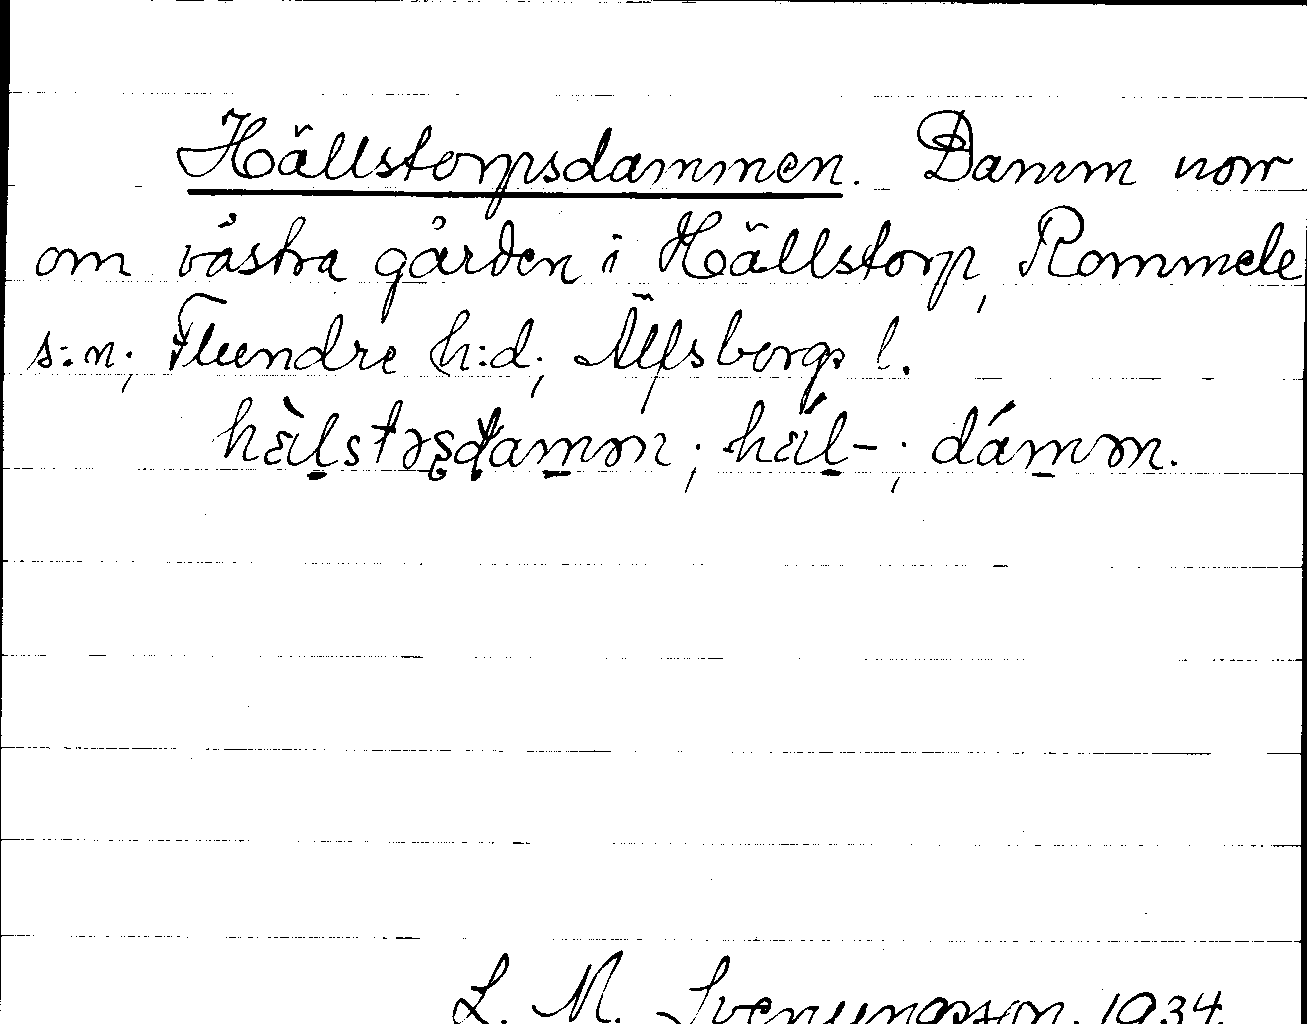 Hällstorpsdammen. Damm norr
om västra gården i Hällstorp, Rommele
s:n; Flundre h:d; Älfsborgs l.
hä̀l̠stəʂdam̠ən; hä́l̠-; dám̠ən.
L. M. Svenungsson. 1934.